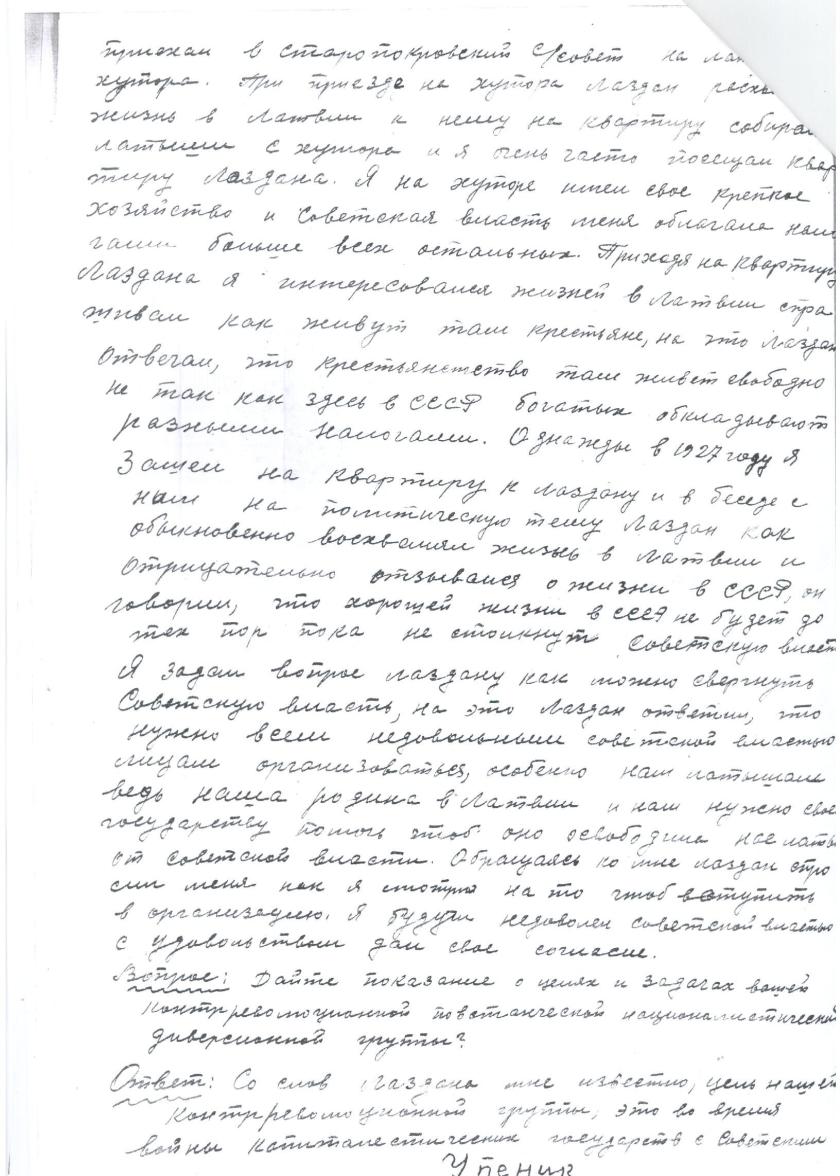 приехал в старопокровский С/совет на
хутора. При приезде на хутора Лаздан
жизнь в Латвии к нему на квартиру собира
латыши с хутора и я очень часто посещал квар
тиру Лаздана. Я на хуторе имел свое крепкое
хозяйство и Советская власть меня облагала нало
гами больше всех остальных. Приходя на квартиру
Лаздана я интересовался жизней в Латвии спра
шивал как живут там крестьяне, на это Лаздан
Отвечал, что крестьянство там живет свободно
не так как здесь в СССР богатых обкладывают
разными налогами. Однажды в 1927 году я
Зашел на квартиру к Лаздану и в беседе с
ним на политическую тему Лаздан как
обыкновенно восхвалял жизнь в Латвии и
Отрицательно отзывался о жизни в СССР, он
говорил, что хорошей жизни в СССР не будет до
тех пор пока не столкнут Советскую власть
Я задал вопрос Лаздану как можно свергнуть
Советскую власть, на это Лаздан ответил, что
нужно всем недовольным советской властью
лицам организоваться, особенно нам латышам
ведь наша родина в Латвии и нам нужно свое
государству помочь чтоб оно освободила нас латы
от советской власти. Обращаясь ко мне Лаздан спро
сил меня как я смотрю на то чтоб вступить
в организацию. Я будучи недоволен советской властью
с удовольствием дал свое согласие.
Вопрос: Дайте показание о целях и задачах вашей
контрреволюционной повстанческой националистической
диверсионной группы?
Ответ: Со слов Лаздана мне известно, цель нашей
контрреволюционной группы, это во время
войны капиталистических государств с Советским
Упеник